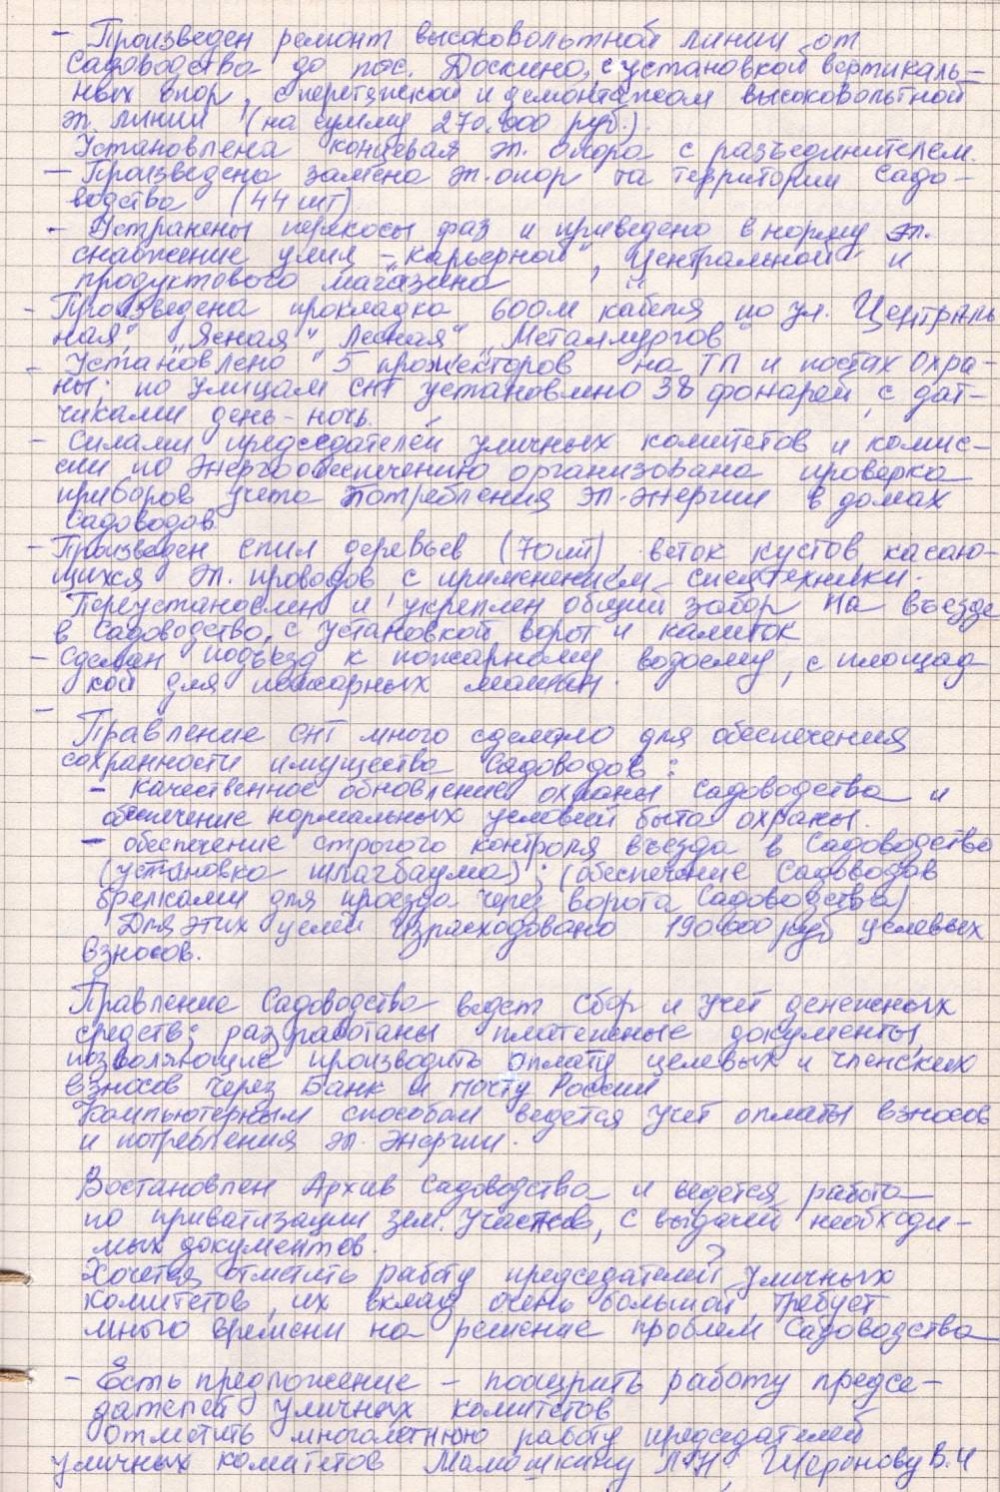 - Произведен ремонт высоковольтной линии от
Садоводства до пос. Доскино, с установкой вертикаль-
ных опор, с перетяжкой и демонтажом высоковольтной
эл. линии (на сумму 270.000 руб.).
Установлена концевая эл. опора с разъединителем.
- Произведена замена эл. опор на территории Садо-
водства (44 шт)
- Устранены перекосы фаз и приведено в норму эл.
снабжение улиц - „Карьерной", Центральной" и
продуктового магазина
- Произведена прокладка 600м кабеля по ул. Централь
ная", „Ясная" Лесная" „Металлургов"
- Установлено 5 прожекторов на ТП и постах охра-
ны; по улицам СНТ установлено 38 фонарей, с дат-
чиками день-ночь.
- Силами председателей уличных комитетов и комис-
сии по энергообеспечению организована проверка
приборов учета потребления эл. энергии в домах
Садоводов
- Произведен спил деревьев (70шт) веток кустов касаю-
щихся эл. проводов с применением спецтехники.
Переустановлен и укреплен общий забор на въезде
в Садоводство, с установкой ворот и калиток
- Сделан подъезд к пожарному водоему, с площад
кой для пожарных машин.
-
Правление СНТ много сделало для обеспечения
сохранности имущества Садоводов:
- качественное обновление охраны Садоводства и
обеспечение нормальных условий быта охраны.
- обеспечение строгого контроля въезда в Садоводство
(установка шлагбаума); (обеспечение Садоводов
брелками для проезда через ворота Садоводства)
Для этих целей израсходовано 190.000 руб целевых
взносов.
Правление Садоводства ведет сбор и учет денежных
средств; разработаны платежные документы,
позволяющие производить оплату целевых и членских
взносов через Банк и почту России
Компьютерным способом ведется учет оплаты взносов
и потребления эл. энергии.
Востановлен Архив Садоводства и ведется работа
по приватизации зем. участков, с выдачей необходи-
мых документов.
Хочется отметить работу председателей уличных
комитетов, их вклад очень большой, требует
много времени на решение проблем Садоводства
- Есть предложение - поощрить работу предсе-
дателей уличных комитетов
Отметить многолетнюю работу председателей
уличных комитетов Мамошкину Л.Н,